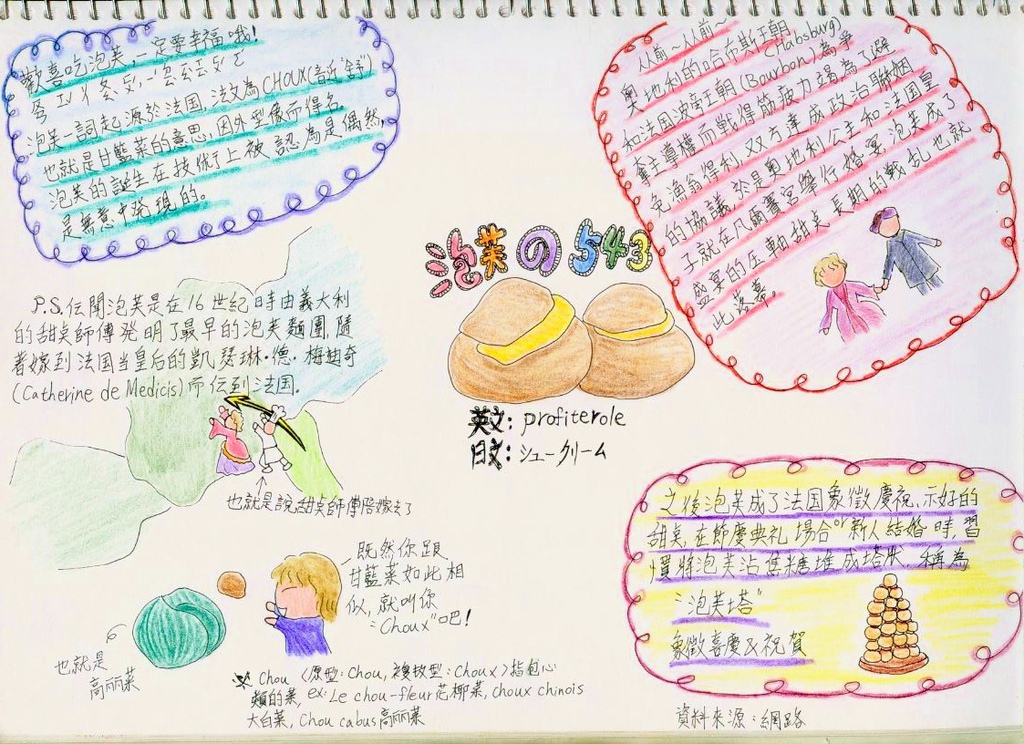 歡喜吃泡芙,一定要幸福哦!
ㄎㄨㄧ夂ㄆㄡ,一ㄥ公云ㄆㄛ
泡芙一詞起源於法国,法文為CHOUX(音近"舒")
也就是甘藍菜的意思,因外型像而得名。
泡芙的誕生在技術上被認為是偶然,
是無意中発現的。
P.S.伝聞泡芙是在16世紀時由義大利
的甜点師傅發明了最早的泡芙麵團,隨
著嫁到法国当皇后的凱瑟琳·德·梅迪奇
(Catherine de Medicis)而伝到法国.
也就是說甜点師傅陪嫁去了
泡芙の543
英文: profiterole
日文: シュークリーム
从前~从前~
奧地利的哈布斯王朝(Habsburg)
和法国波帝王朝(Bourbon)為爭
奪主導權而戰得筋疲力竭為了避
免漁翁得利,双方達成政治聯姻
的協議,於是奧地利公主和法国皇
子就在凡爾賽宮舉行婚宴,泡芙成了
盛宴的压軸甜点,長期的戰乱也就
此落幕。
之後泡芙成了法国象徵慶祝、示好的
甜点,在節慶典礼場合or新人結婚時,習
慣將泡芙沾焦糖堆成塔狀,稱為
"泡芙塔"
象徵喜慶&祝賀
既然你跟
甘藍菜如此相
似,就叫你
"Choux"吧!
也就是
高丽菜
※ Chou (原型:Chou,複数型:Choux)指包心
類的菜, ex: Le chou-fleur花椰菜, choux chinois
大白菜, Chou cabus高丽菜
資料來源:網路